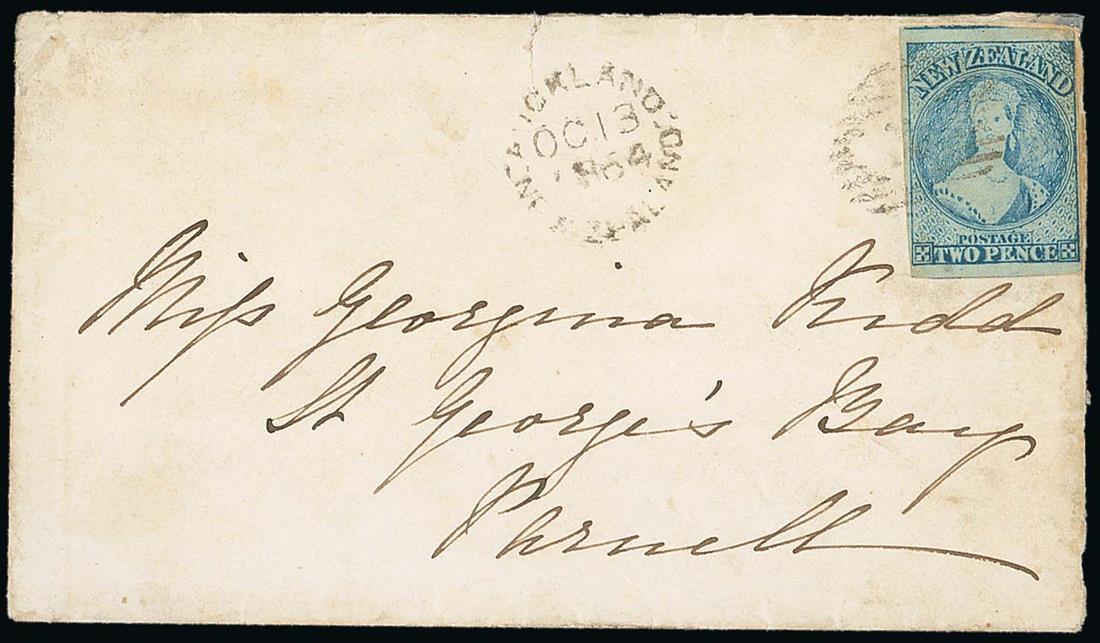 AUCKLAND
OC 13
1864
NEW ZEALAND
NEW ZEALAND
POSTAGE
TWO PENCE
Miss Georgina Kidd
St George's Bay
Parnell